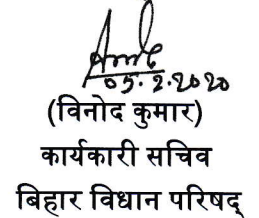 05.2.2020
(विनोद कुमार)
कार्यकारी सचिव
बिहार विधान परिषद्